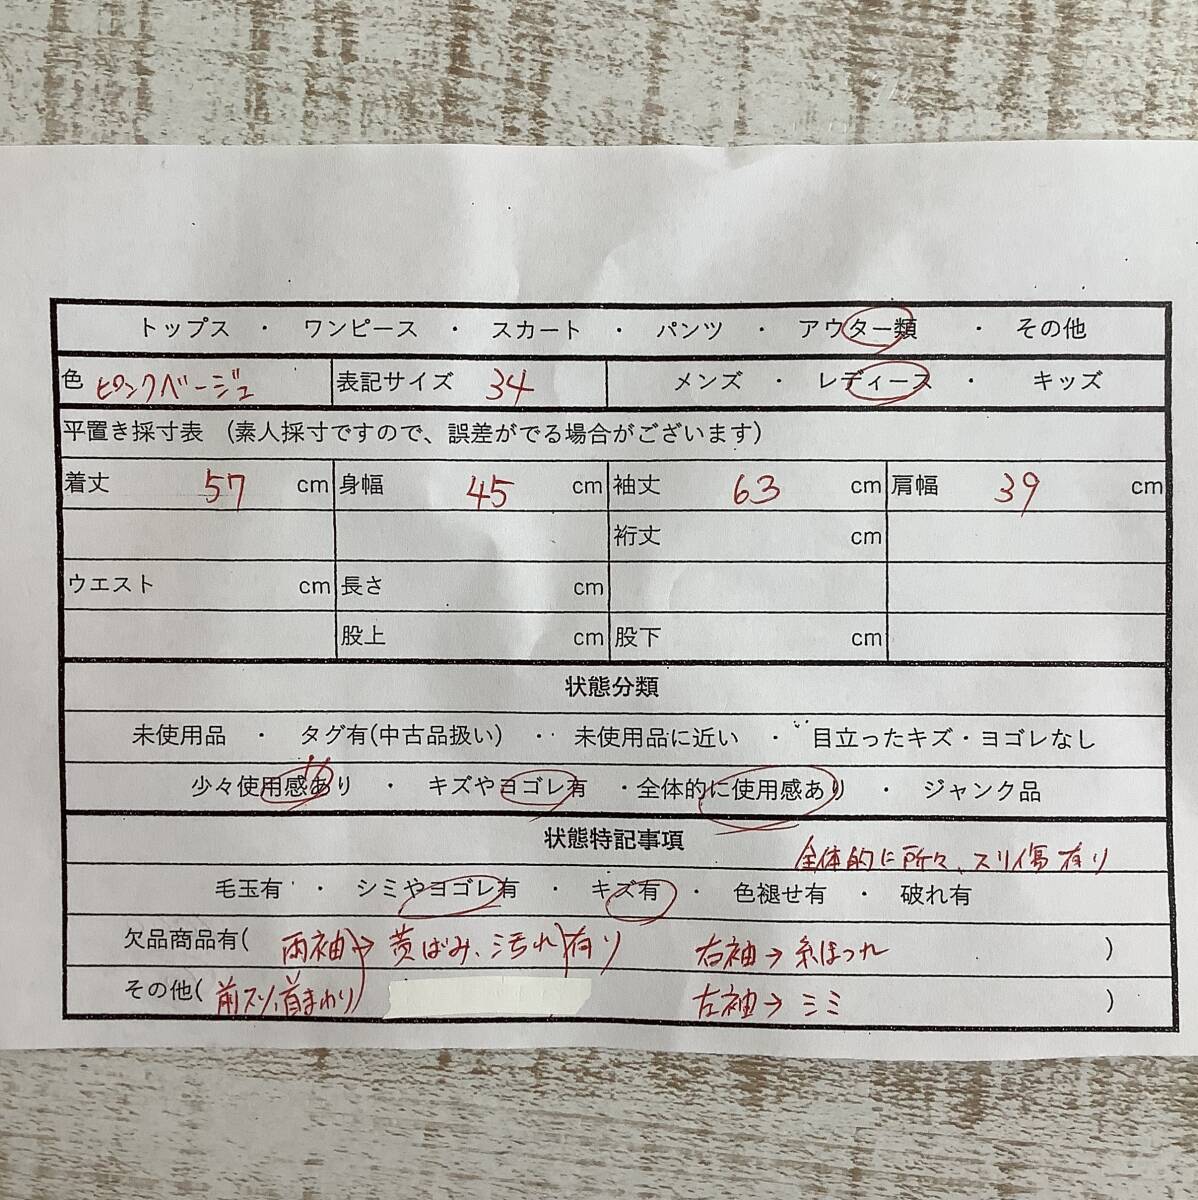 トップス ・ ワンピース ・ スカート ・ パンツ ・ アウター類 ・ その他
色 ピンクベージュ 表記サイズ 34 メンズ ・ レディース ・ キッズ
平置き採寸表 (素人採寸ですので、誤差がでる場合がございます)
着丈 57 cm 身幅 45 cm 袖丈 63 cm 肩幅 39 cm
裄丈 cm
ウエスト cm 長さ cm
股上 cm 股下 cm
状態分類
未使用品 ・ タグ有(中古品扱い) ・ 未使用品に近い ・ 目立ったキズ・ヨゴレなし
少々使用感あり ・ キズやヨゴレ有 ・全体的に使用感あり ・ ジャンク品
状態特記事項
全体的に所々、スリ傷有り
毛玉有 ・ シミやヨゴレ有 ・ キズ有 ・ 色褪せ有 ・ 破れ有
欠品商品有( 両袖→黄ばみ、汚れ有り 右袖→糸ほつれ )
その他( 前スソ、首まわり 左袖→シミ )